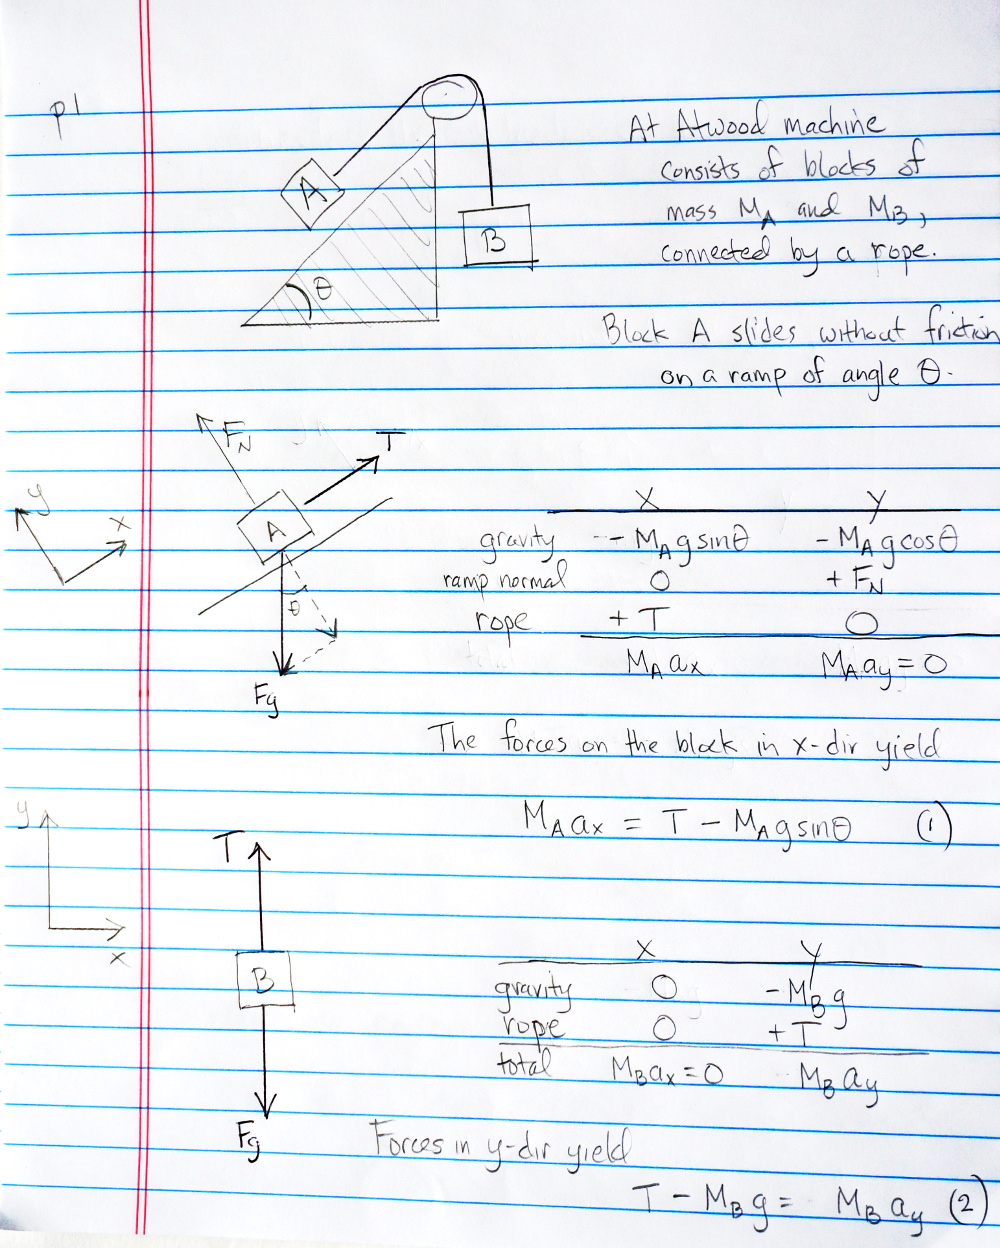 p1
At Atwood machine
consists of blocks of
mass M_A and M_B,
connected by a rope.
A
B
θ
Block A slides without friction
on a ramp of angle θ.
F_N
T
y
x
A
θ
Fg
x y
gravity - M_A g sinθ - M_A g cosθ
ramp normal 0 + F_N
rope + T 0
M_A a_x M_A a_y = 0
The forces on the block in x-dir yield
M_A a_x = T - M_A g sinθ (1)
y
x
T
B
Fg
x y
gravity 0 - M_B g
rope 0 + T
total M_B a_x = 0 M_B a_y
Forces in y-dir yield
T - M_B g = M_B a_y (2)